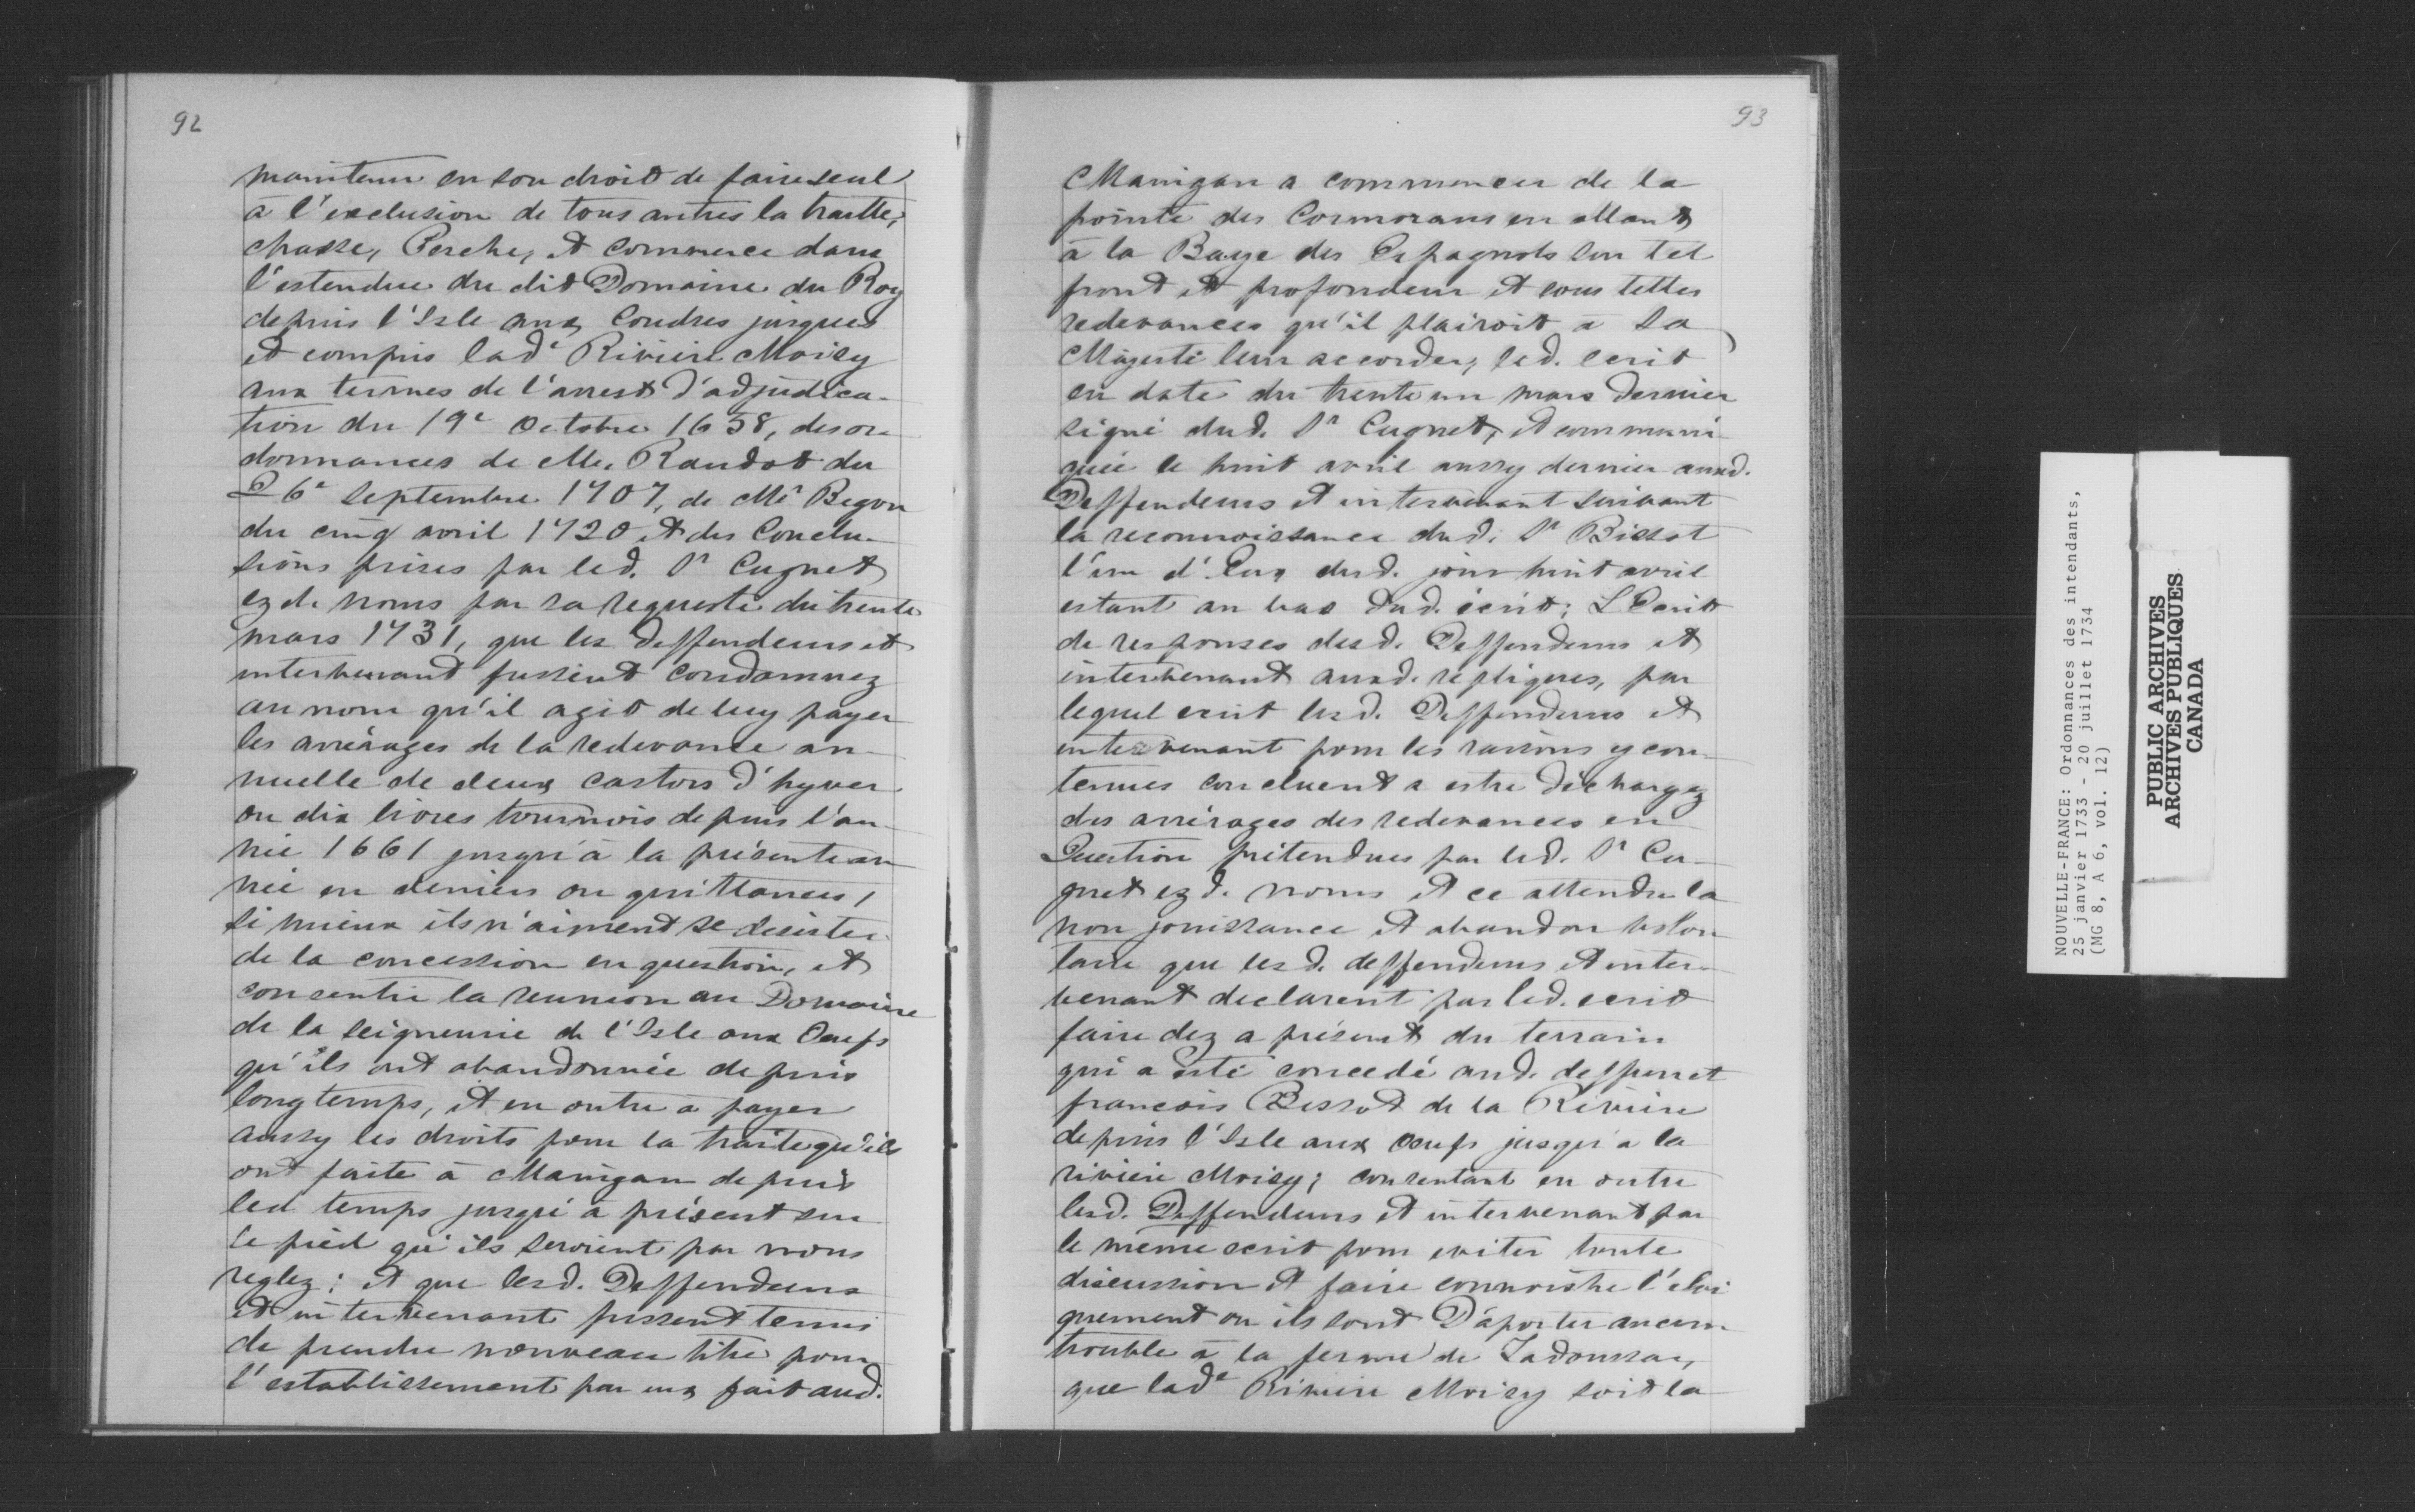 92
maintenu en son droit de faire seul
à l'exclusion de tous autres la traitte,
chasse, Pesche, et commerce dans
l'estendue du dit Domaine du Roy
depuis l'Isle aux Coudres jusques
et compris lade Riviere Moisy
aux termes de l'arrest d'adjudica-
tion du 19e Octobre 1658, des or-
donnances de Mr. Raudot du
26e Septembre 1707, de Mr Begon
du cinq avril 1720 et des Conclu-
sions prises par led. Sr Cugnet
ez de noms par sa requeste du trente
mars 1731, que les deffendeurs et
intervenant fussent condamnez
au nom qu'il agit de luy payer
les arrérages de la redevance an-
nuelle de deux castors d'hyver
ou dix livres tournois depuis l'an-
née 1661 jusqu'à la présente an-
née en deniers ou quittances,
si mieux ils n'aiment se desister
de la concession en question, et
consentir la reunion au Domaine
de la seigneurie de l'Isle aux Oeufs
qu'ils ont abandonnée depuis
longtemps, et en outre a payer
aussy les droits pour la traite qu'ils
ont faite à Mainigan depuis
led temps jusqu'à présent sur
le pied qu'ils seroient par nous
reglez: et que lesd. Deffendeurs
et intervenant fussent tenus
de prendre nouveau titre pour
l'establissement par eux fait aud.
93
Mainigan a commencer de la
pointe des Cormorans en allant
à la Baye des Espagnols sur tel
front et profondeur et sous telles
redevances qu'il plairoit à Sa
Majesté leur accorder, led. ecrit
en date du trente un mars dernier
signé dud. Sr Cugnet, et communi-
quée le huit avril aussy dernier auxd.
Deffendeurs et intervenant suivant
la reconnoissance dud. Sr Bissot
l'un d'Eux dud. jour huit avril
estant au bas dud. écrit; L'Ecrit
de responses desd. Deffendeurs et
intervenant auxd. répliques, par
lequel ecrit lesd. Deffendeurs et
intervenant pour les raisons y con-
tenues concluent a estre déchargez
des arrérages des redevances en
Question prétendues par led. Sr Cu-
gnet ez d. noms et ce attendu la
non jouissance et abandon volon
taire que lesd. deffendeurs et inter-
venant declarent par led. ecrit
faire dez a présent du terrain
qui a esté concedé aud. deffunct
francois Bissot de la Riviere
depuis l'Isle aux oeufs jusqu'a la
riviere Moisy; consentant en outre
lesd. Deffendeurs et intervenant par
le même ecrit pour eviter toute
discussion et faire connoistre l'eloi
gnement ou ils sont D'aporter aucun
trouble à la ferme de Tadoussac,
que lade Riviere Moisy soit la
NOUVELLE-FRANCE: Ordonnances des intendants,
25 janvier 1733 - 20 juillet 1734
(MG 8, A 6, vol. 12)
PUBLIC ARCHIVES
ARCHIVES PUBLIQUES
CANADA